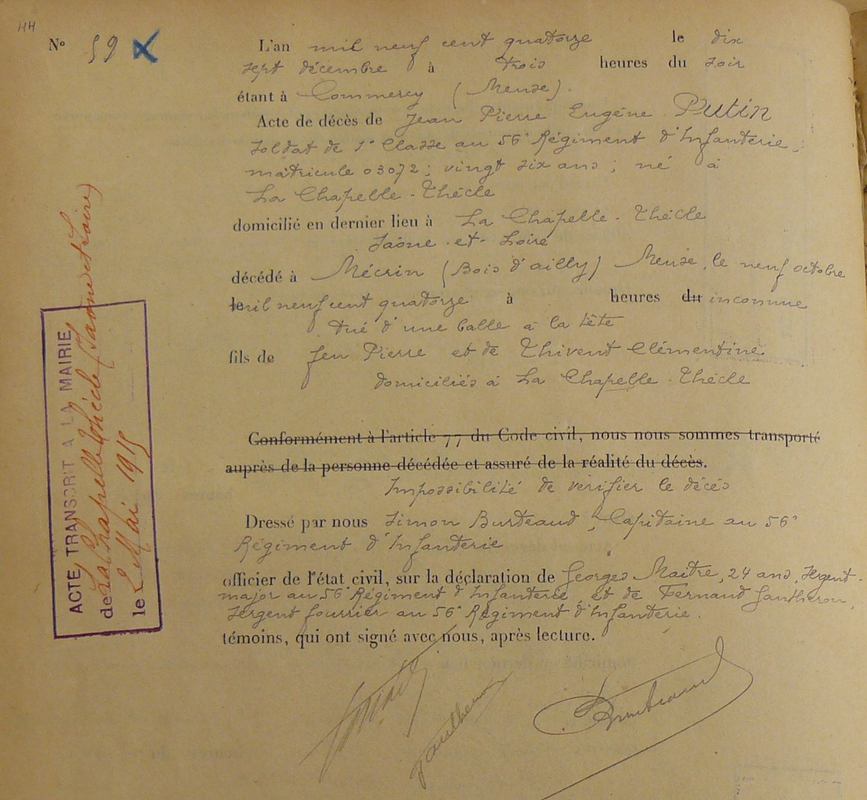 44
N° 59
L'an mil neuf cent quatorze le dix
sept décembre à trois heures du soir
étant à Commercy (Meuse).
Acte de décès de Jean Pierre Eugène Putin
soldat de 1e Classe au 56e Régiment d'Infanterie,
matricule 03072; vingt six ans; né à
La Chapelle-Thécle
domicilié en dernier lieu à La Chapelle-Thécle
Saône-et-Loire
décédé à Mécrin (Bois d'ailly) Meuse, le neuf octobre
mil neuf cent quatorze à heures du inconnue
tué d'une balle à la tête
fils de feu Pierre et de Thivent Clémentine
domiciliés à La Chapelle-Thécle
Conformément à l'article 77 du Code civil, nous nous sommes transporté
auprès de la personne décédée et assuré de la réalité du décès.
Impossibilité de vérifier le décés
Dressé par nous Simon Burteaud, Capitaine au 56e
Régiment d'Infanterie
officier de l'état civil, sur la déclaration de Georges Maitre, 24 ans, Sergent-
major au 56e Régiment d'Infanterie et de Fernand Gautheron,
Sergent fourrier au 56e Régiment d'Infanterie.
témoins, qui ont signé avec nous, après lecture.
Gautheron
ACTE TRANSCRIT A LA MAIRIE
de La Chapelle Thécle (Saône et Loire)
le 2 Mai 1915